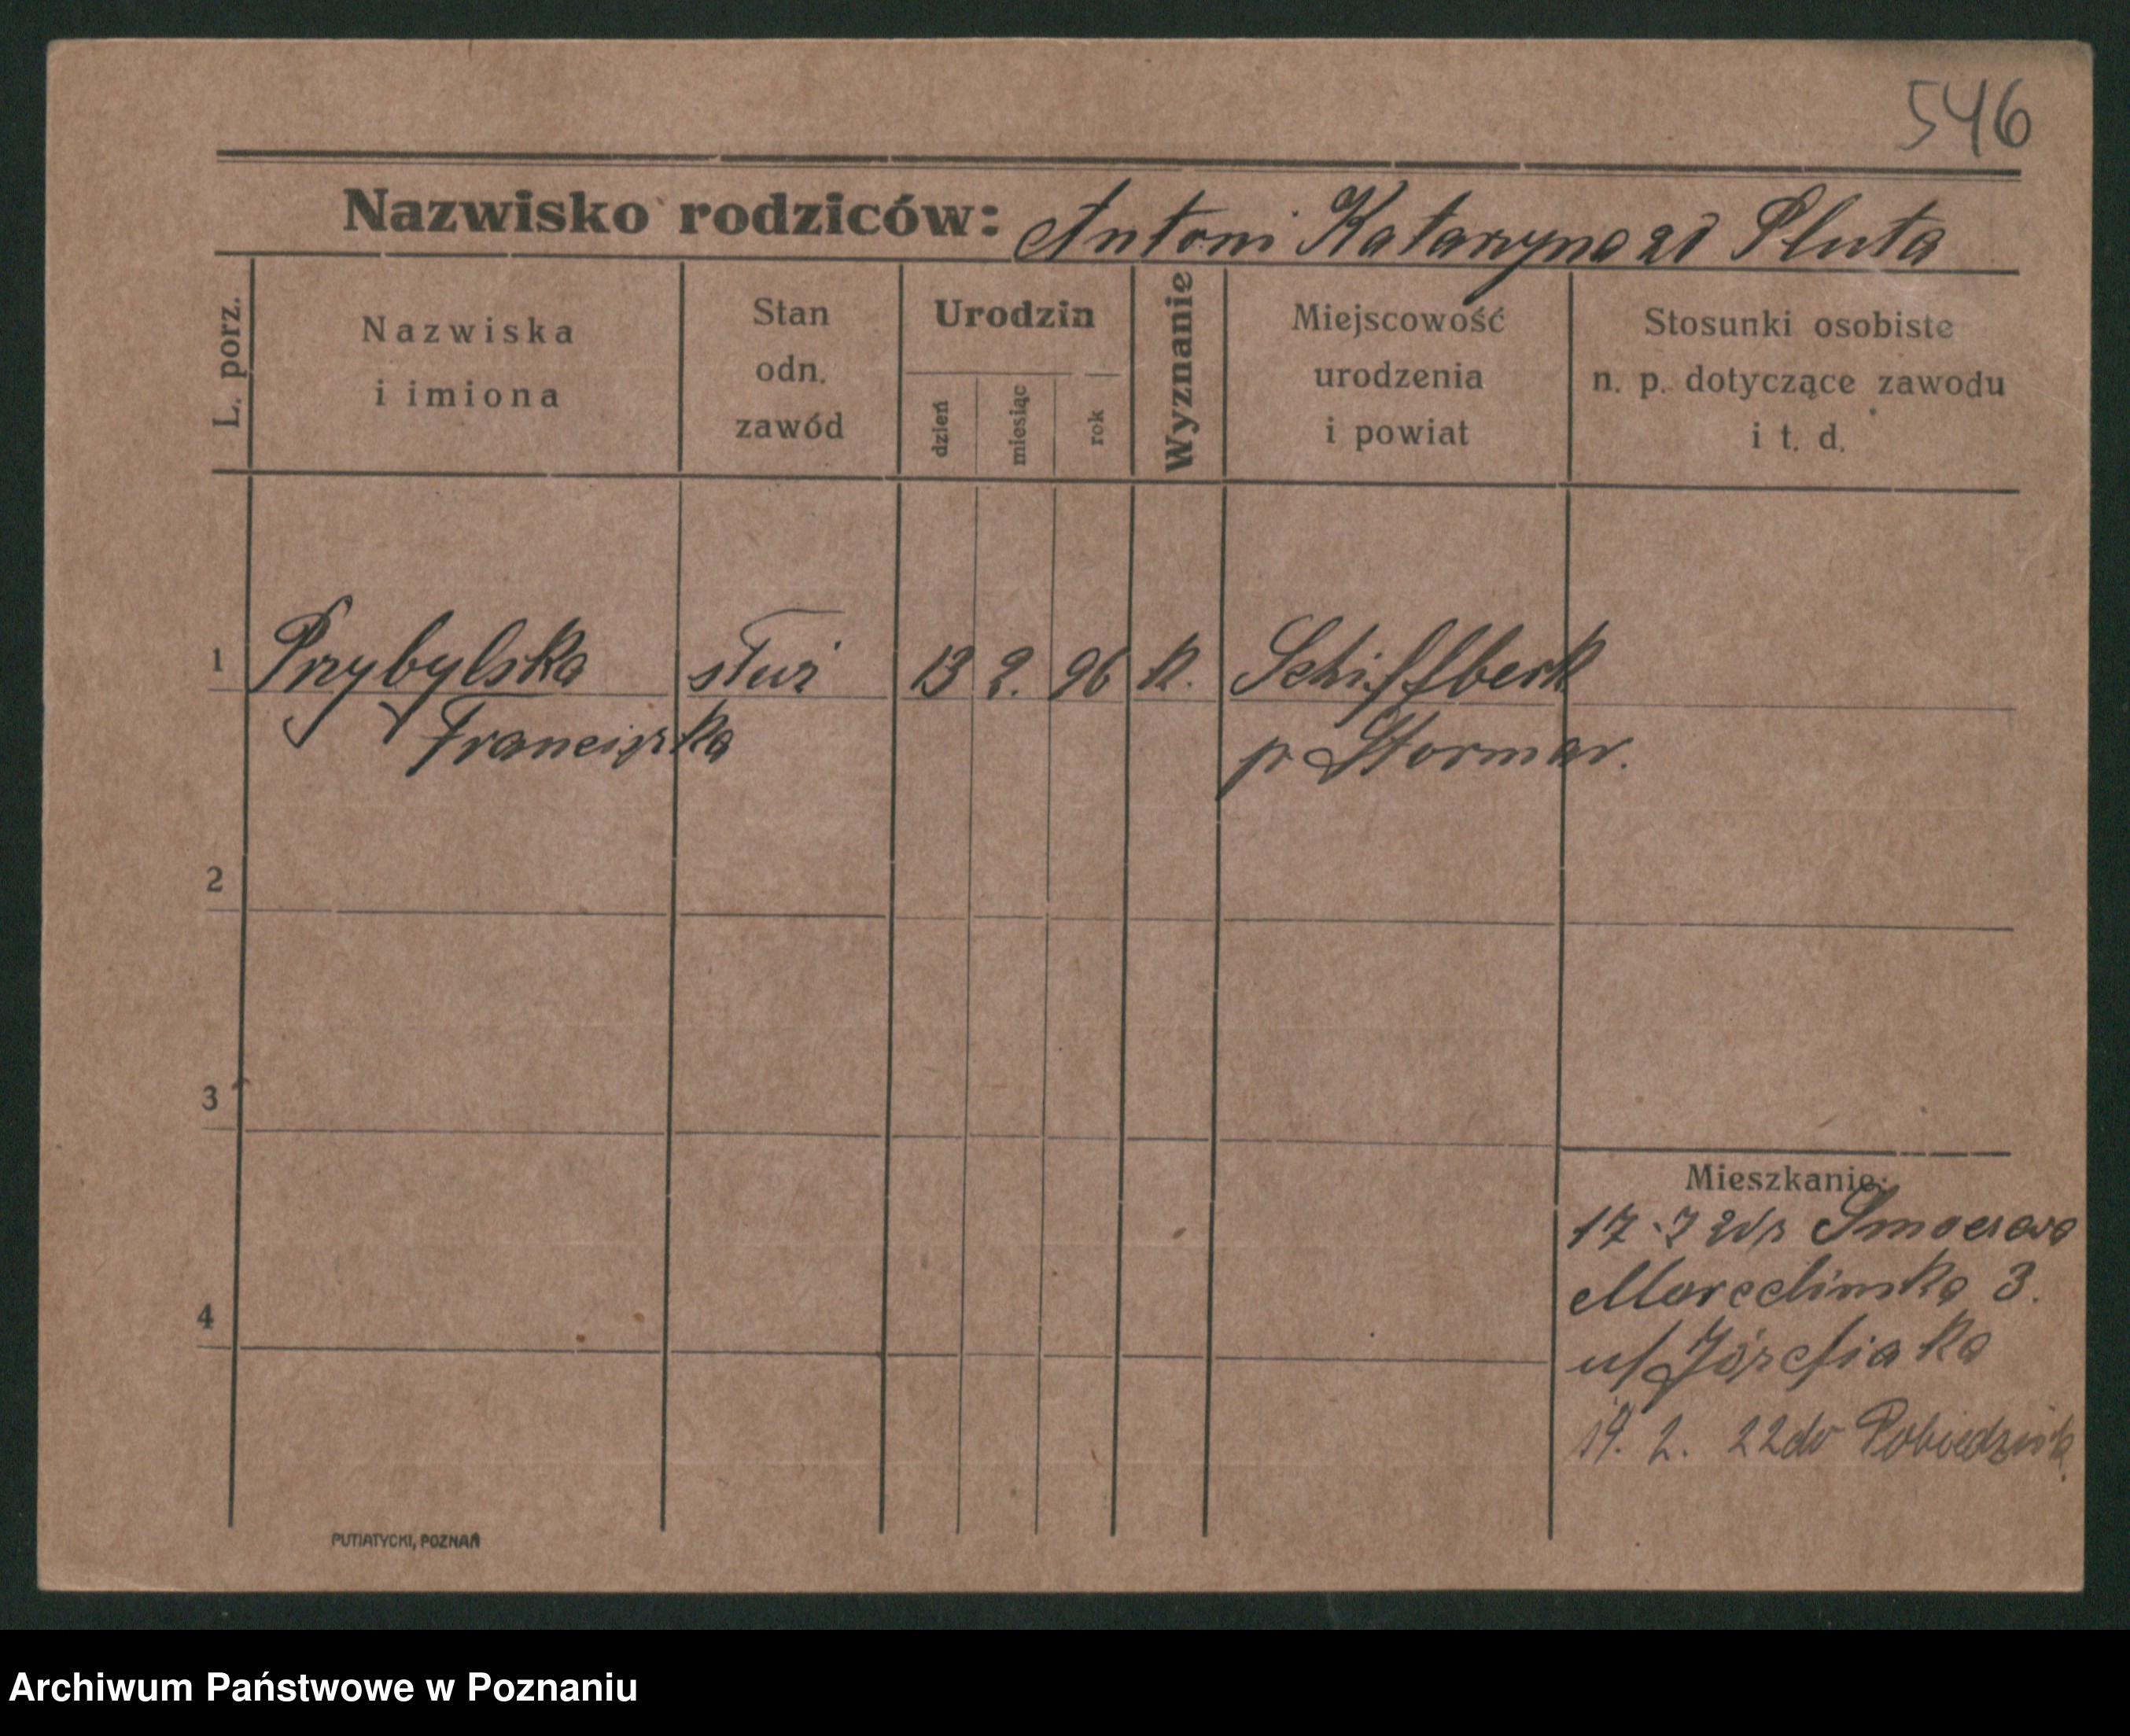 546
Nazwisko rodziców: Antoni Katarzyna zd Pluta
L. porz.
Nazwiska
i imiona
Stan
odn.
zawód
Urodzin
dzień
miesiąc
rok
Wyznanie
Miejscowość
urodzenia
i powiat
Stosunki osobiste
n. p. dotyczące zawodu
i t. d.
1 Przybylska służ 13 2. 96 k. Schiffbeck
Franciszka p Stormar.
2
3
4
Mieszkanie:
17-7
Marcelinska 3.
u/Józefiaka
19. 2. 22 do Pobiedzisk.
PUTIATYCKI, POZNAŃ
Archiwum Państwowe w Poznaniu